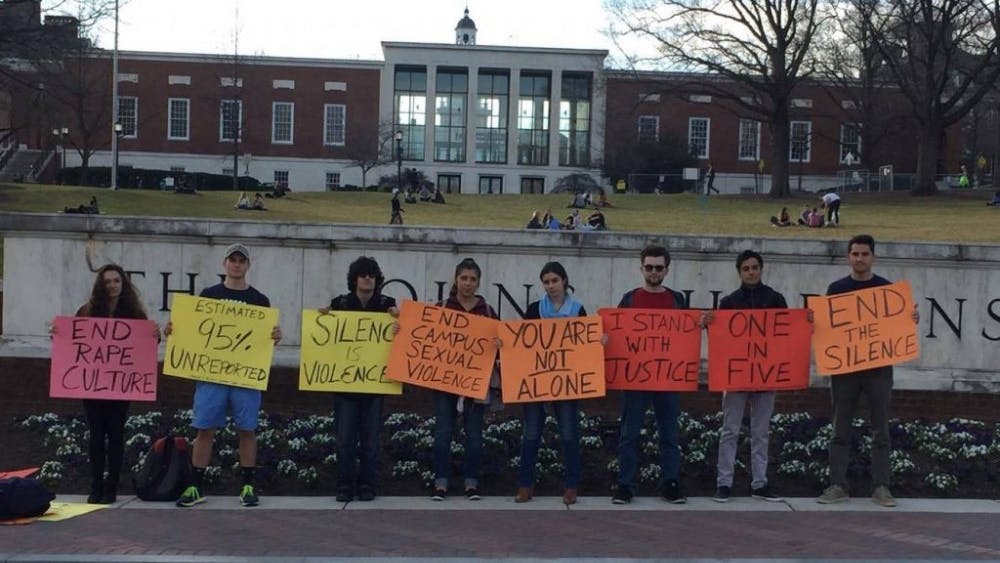 END
RAPE
CULTURE
ESTIMATED
95%
UNREPORTED
SILENC
IS
VIOLENCE
END
CAMPUS
SEXUAL
VIOLENCE
YOU ARE
NOT
ALONE
I STAND
WITH
JUSTICE
ONE
IN
FIVE
END
THE
SILENCE